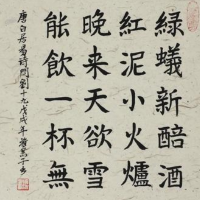 綠蟻新醅酒
紅泥小火爐
晚来天欲雪
能飲一杯無
唐白居易詩問劉十九戊戌年